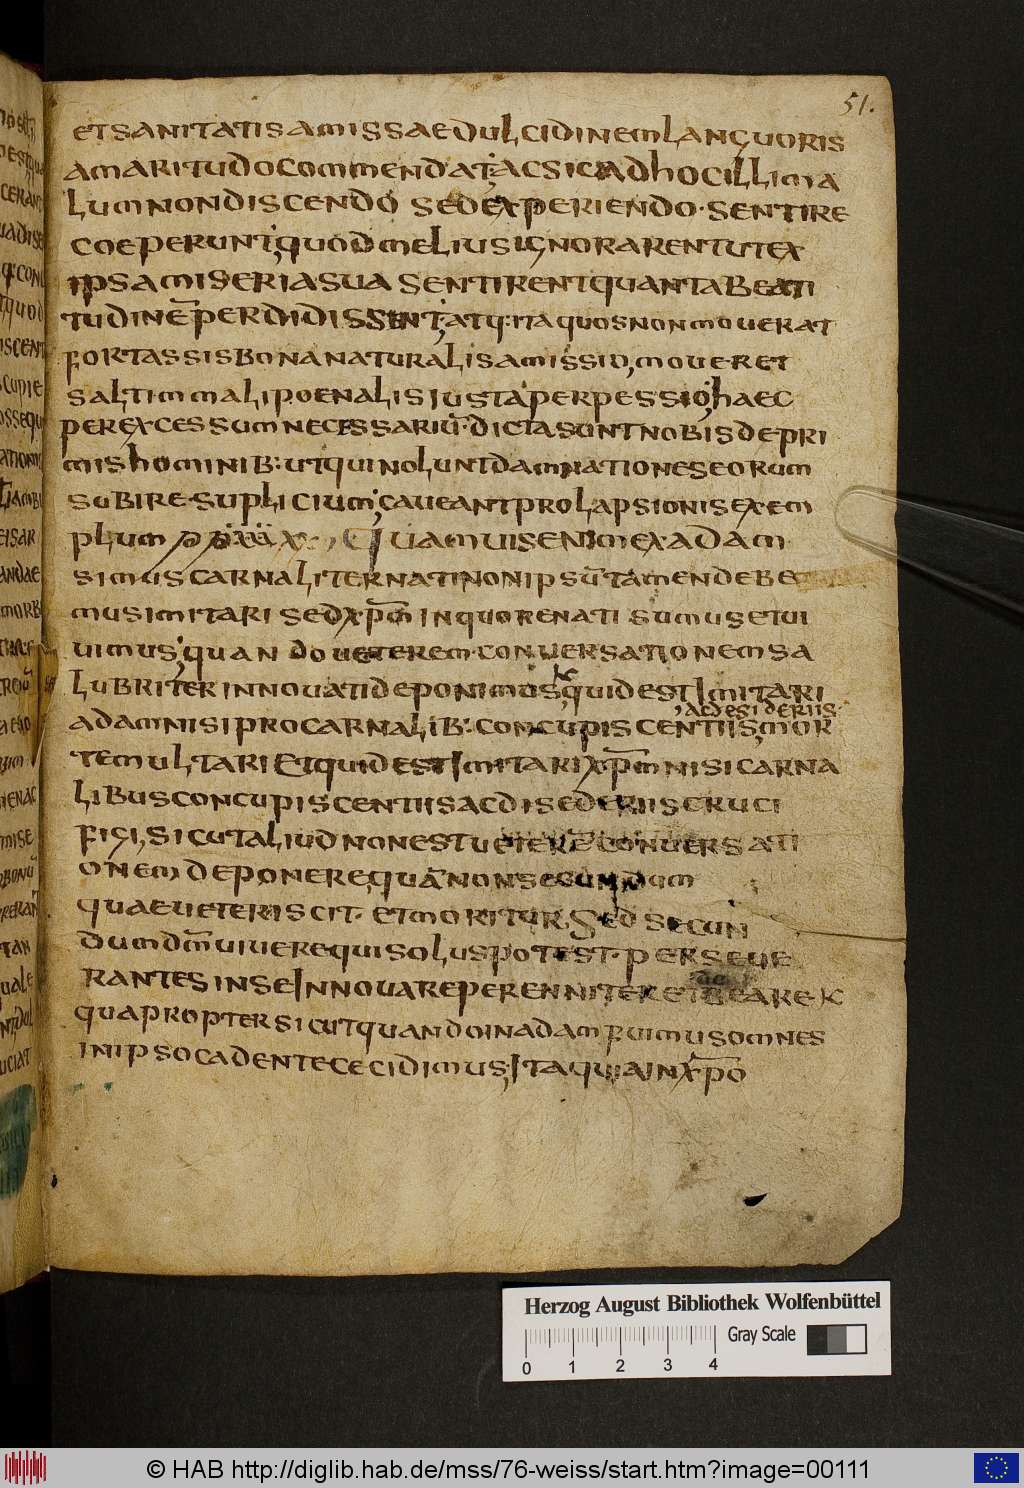 51.
ETSANITATISAMISSAEDULCIDINEMLANGUORIS
AMARITUDOCOMMENDAT; ACSICADHOCILLIMA
LUMNONDISCENDO SEDEXPERIENDO· SENTIRE
COEPERUNT; QUODMELIUSIGNORARENTUTEX
IPSAMISERIASUA SENTIRENTQUANTABEATI
TUDINĒPERDIDISSENT; ATQ: ITAQUOSNONMOUERAT
FORTASSISBONANATURALISAMISSIO, MOUERET
SALTIMMALIPOENALISIUSTAPERPESSIO; HAEC
PEREXCESSUMNECESSARIŪ· DICTASUNTNOBISDEPRI
MISHOMINIB: UTQUINOLUNTDAMNATIONESEORUM
SUBIRE·SUPLICIUM; CAUEANTPROLAPSIONISEXEM
PLUM QUAMUISENIMEXADAM
SIMUSCARNALITERNATINONIPSŪTAMENDEBE
MUSIMITARI SEDXP̄M INQUORENATI SUMUSETUI
UIMUS; QUANDOUETEREM·CONUERSATIONEMSA
LUBRITERINNOUATIDEPONIMUS; QUIDESTIMITARI
, ACDESIDERIIS·
ADAMNISIPROCARNALIB: CONCUPISCENTIIS, MOR
TEMULTARI ETQUIDESTIMITARIXP̄MNISICARNA
LIBUSCONCUPISCENTIISACDISEDERIISCRUCI
FIGI, SICUTALIUDNONESTUETERĒCONUERSATI
ONEMDEPONEREQUĀNONSECUNDUM
QUAEUETERISCIT· ETMORITUR, SEDSECUN
DUMDM̄UIUEREQUISOLUSPOTEST· PERSEUE
RANTESINSEINNOUAREPERENNITERETBEARE
QUAPROPTERSICUTQUANDOINADAMFUIMUSOMNES
INIPSOCADENTECECIDIMUS; ITAQUIAINXP̄O
Herzog August Bibliothek Wolfenbüttel
Gray Scale
0 1 2 3 4
© HAB http://diglib.hab.de/mss/76-weiss/start.htm?image=00111